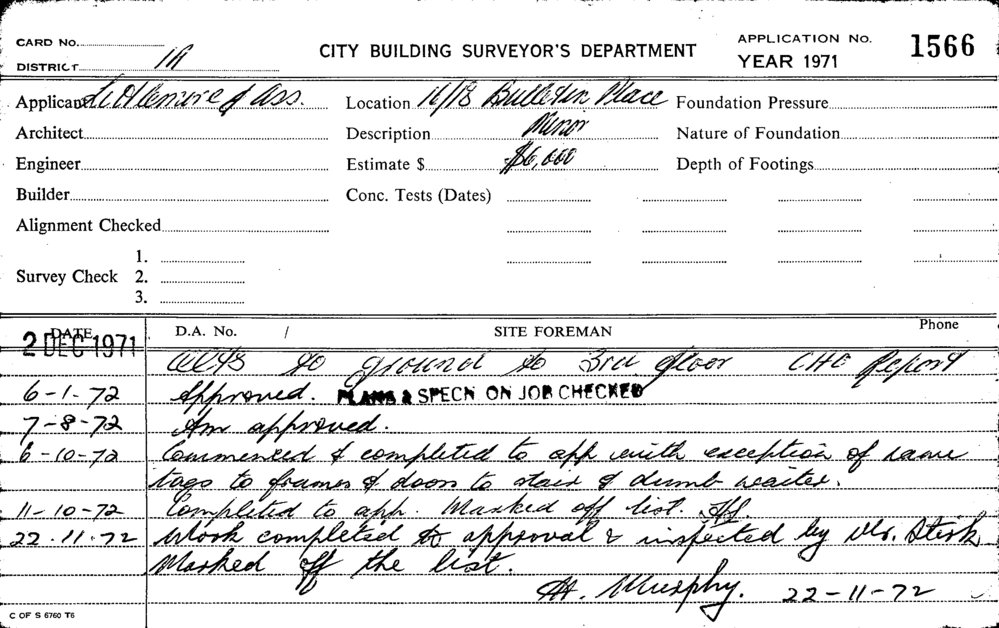 CARD No.
DISTRICT 1A
CITY BUILDING SURVEYOR'S DEPARTMENT
APPLICATION No. 1566
YEAR 1971
Applicant & Ass.
Location 16/18 Bulletin Place
Foundation Pressure
Architect
Description Minor
Nature of Foundation
Engineer
Estimate $ $6,000
Depth of Footings
Builder
Conc. Tests (Dates)
Alignment Checked
Survey Check
1.
2.
3.
DATE
D.A. No. /
SITE FOREMAN
Phone
2 DEC 1971
to ground to 3rd floor CHO Report
6-1-72 Approved. PLANS & SPECN ON JOB CHECKED
7-8-72 Am approved.
6-10-72 Commenced & completed to app with exception of name
tags to frames & doors to stair & dumb waiter.
11-10-72 Completed to app. Marked off list.
22.11.72 Work completed to approval & inspected by Mr. Stirk
Marked off the list.
H. Murphy. 22-11-72
C OF S 6760 T6